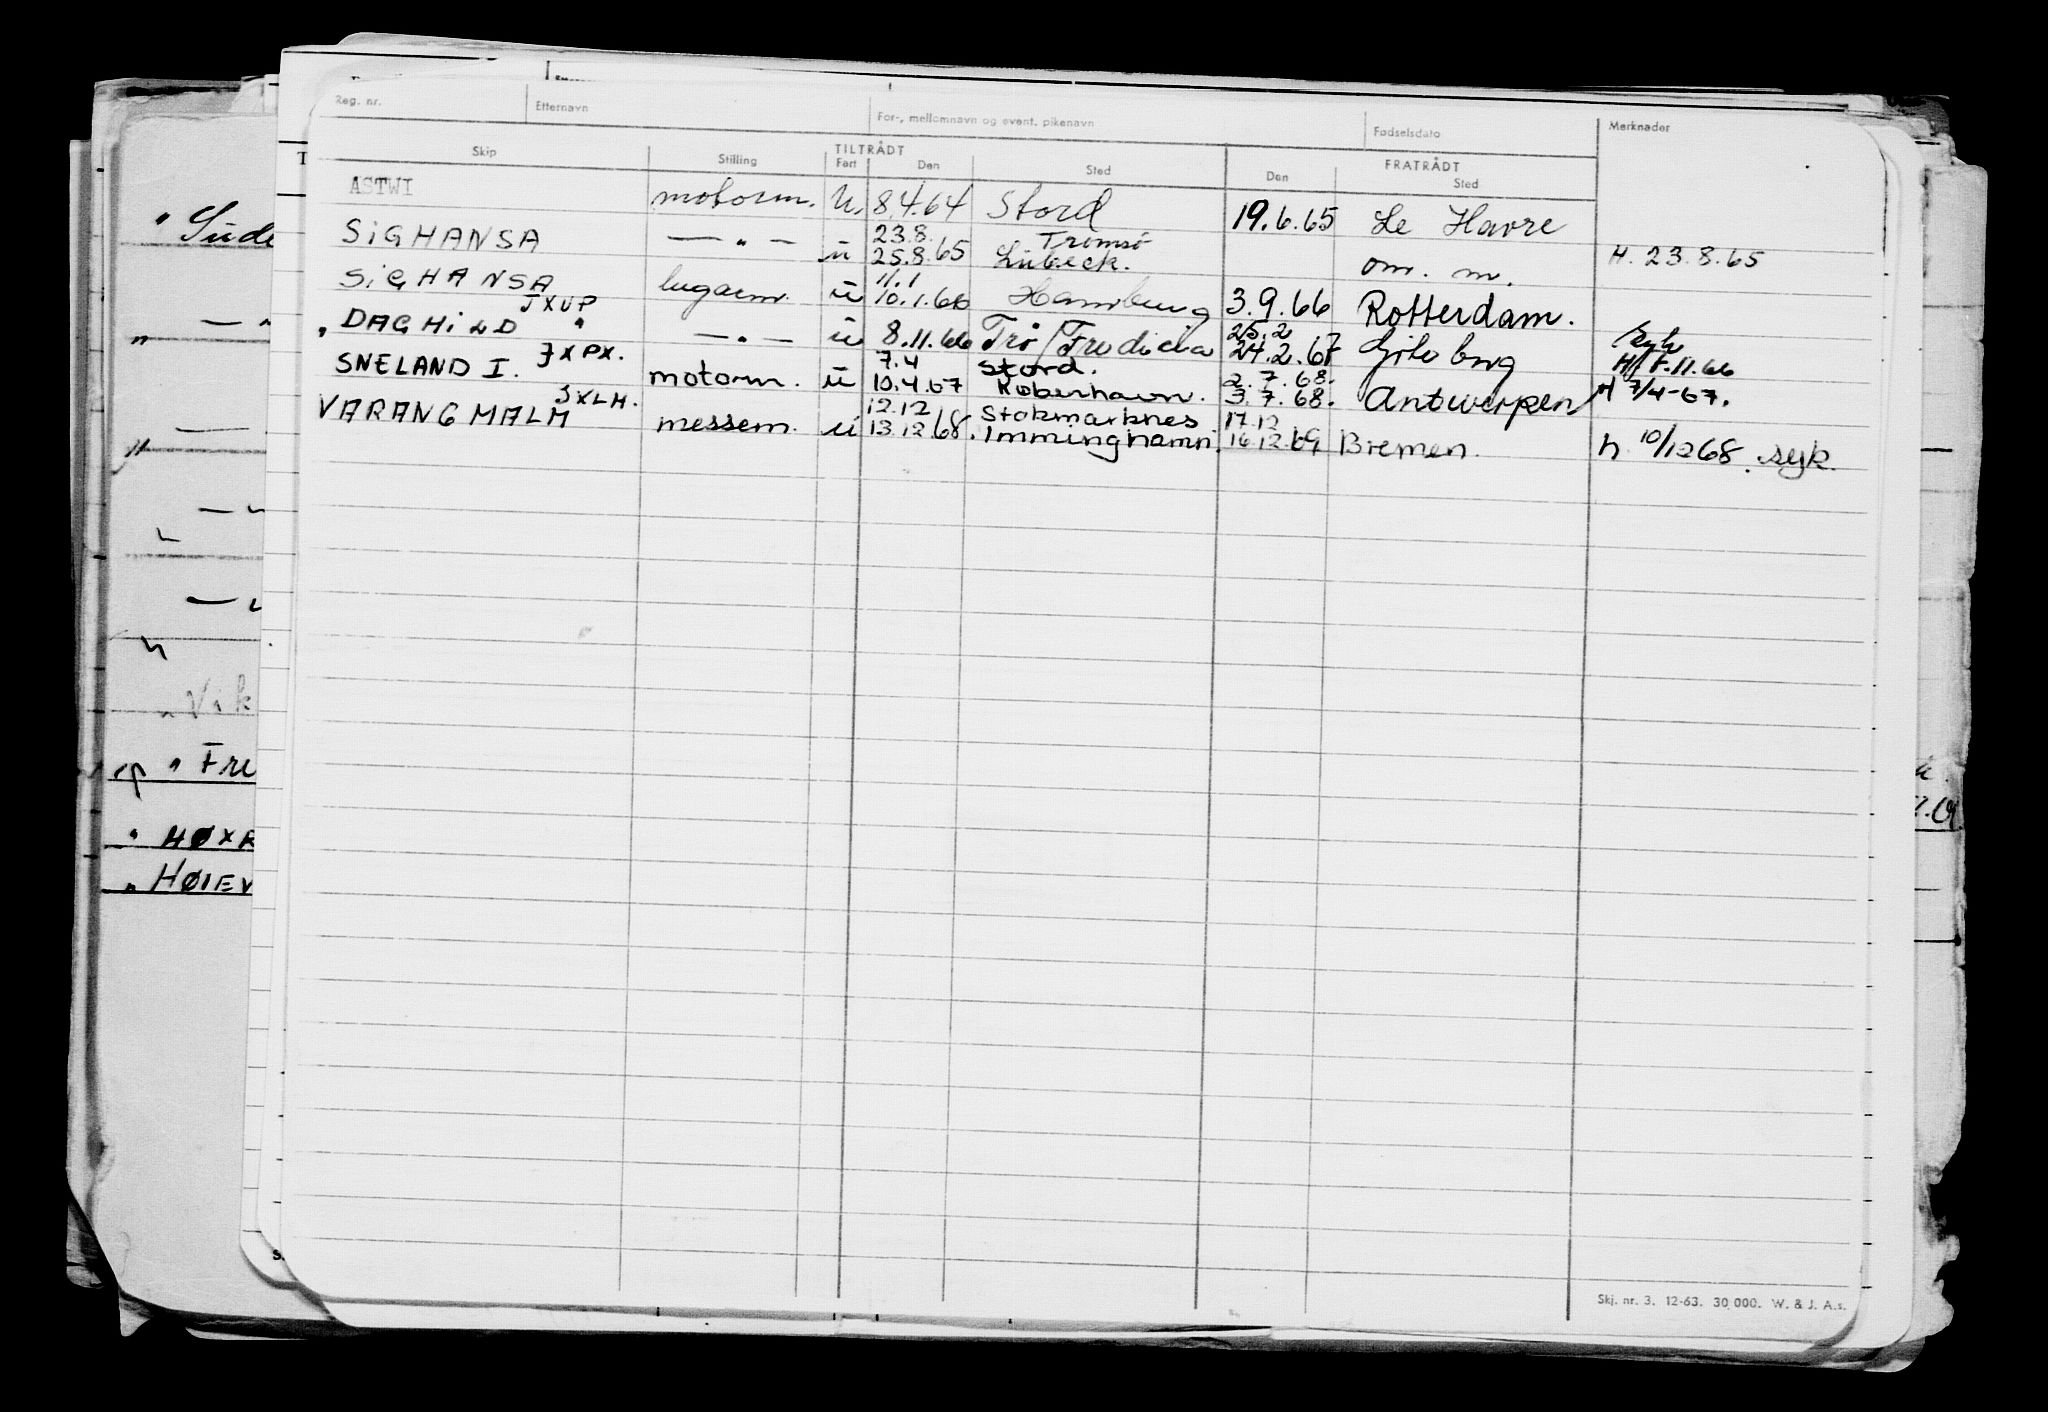 Reg. nr. Etternavn For-, mellomnavn og event. pikenavn Fødselsdato Merknader
Skip Stilling TILTRÅDT Fart Den Sted FRATRÅDT Den Sted
ASTWI motorm. U. 8.4.64 Stord 19.6.65 Le Havre
SiGHANSA — „ — u 23.8. 25.8.65 Tromsö Lübeck. om. m. H. 23.8.65
SiGHANSA lugarm. u 11.1 10.1.66 Hamburg 3.9.66 Rotterdam.
JXUP
„ DAGHiLD " — „ — u 8.11.66 Trö/Fredicia 25.2 24.2.67 Göteborg syk H/ 7.11.66
SNELAND I. JXPX. motorm. u 7.4 10.4.67 Stord. København. 2.7.68. 3.7.68. Antwerpen H 7/4-67.
VARANGMALM JXLH. messem. u 12.12 13.12.68. Stokmarknes Imminghamn. 17.12 16.12.69 Bremen. h 10/12 68. syk.
" Süde
„ —
„ —
—
—
„ Vik
" Fre
" HØXR
„ HØIEV
Skj. nr. 3. 12-63. 30 000. W. & J. A.s.